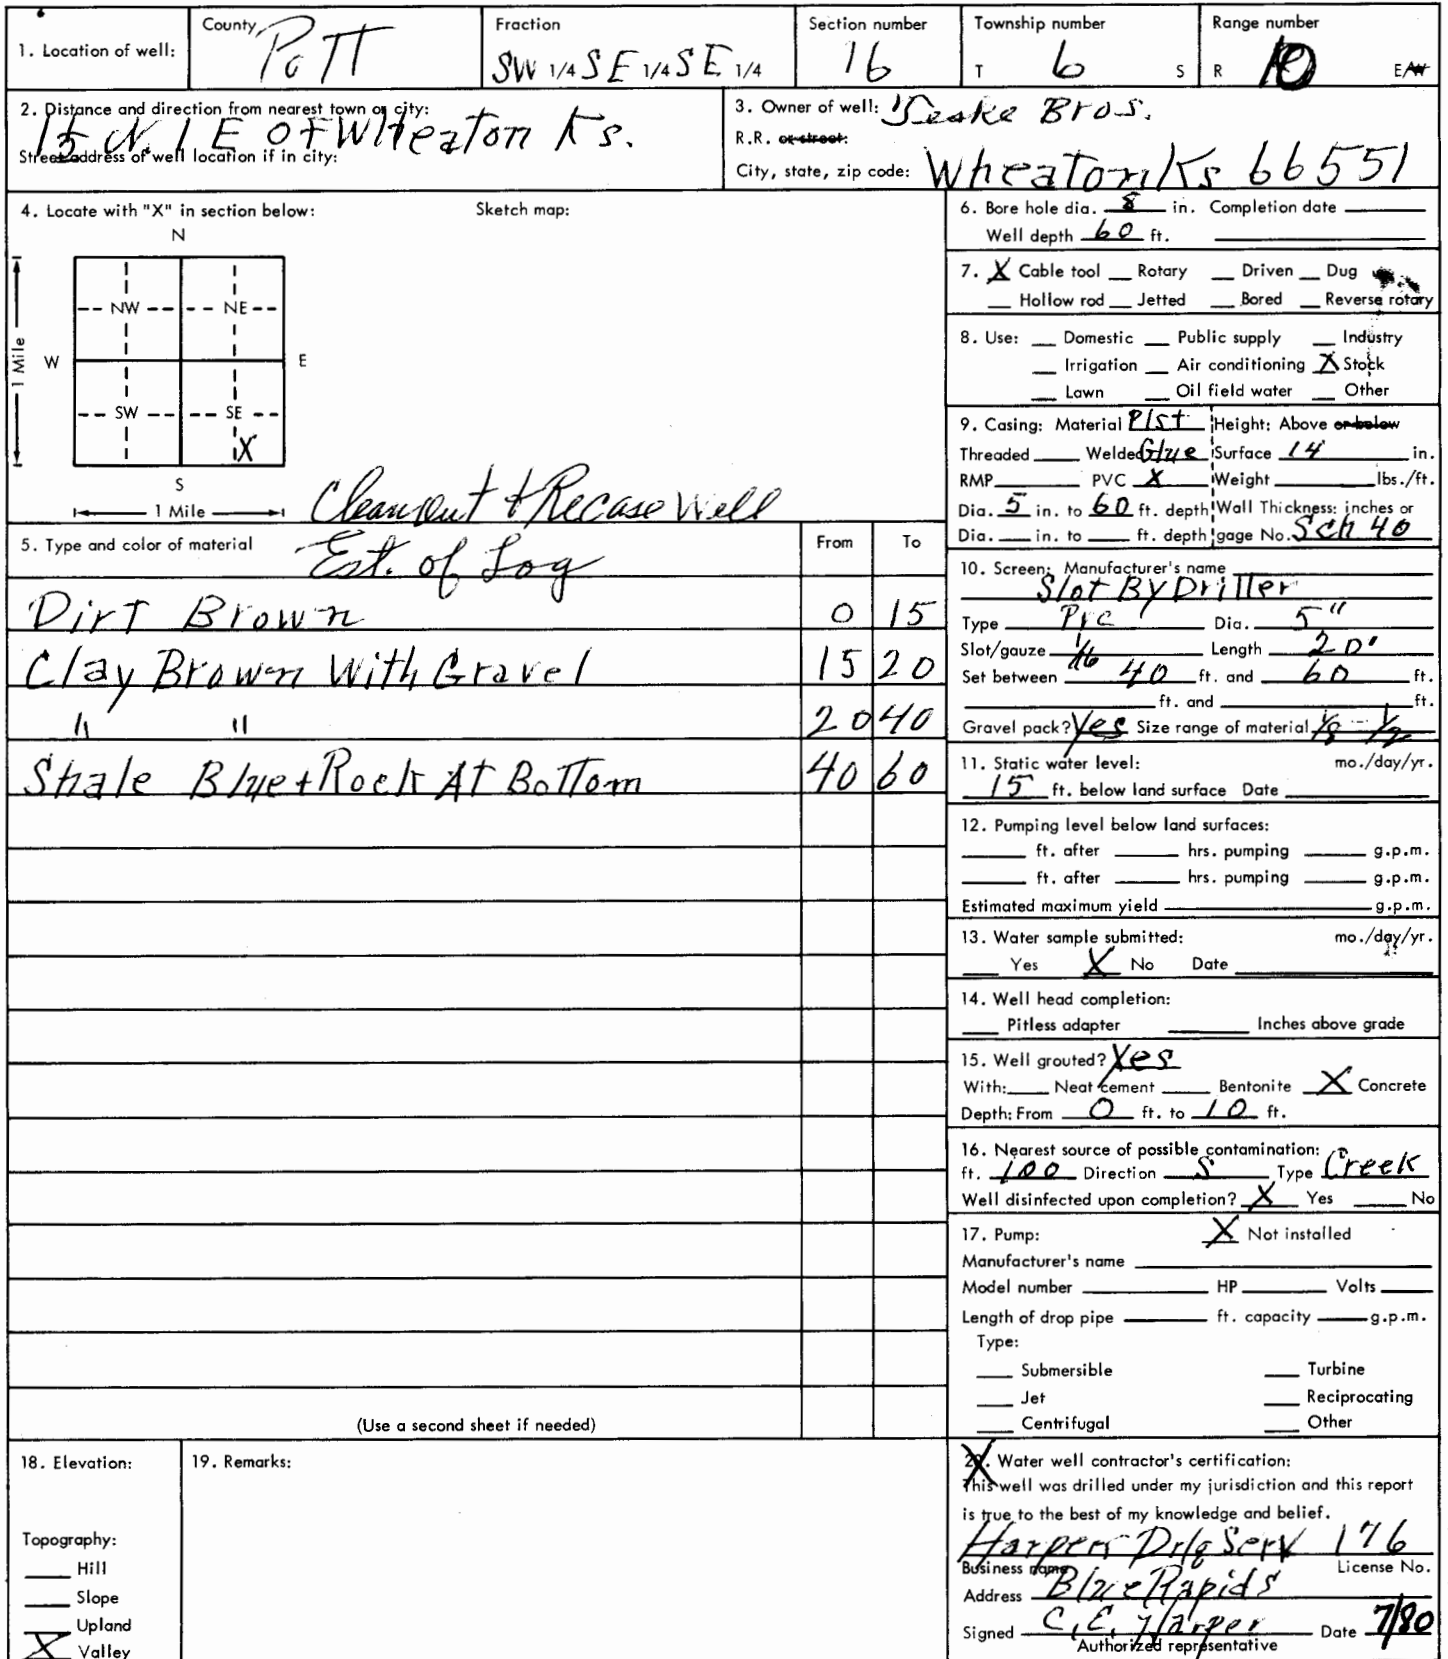 1. Location of well: County Pott Fraction SW 1/4 SE 1/4 SE 1/4 Section number 16 Township number T 6 S Range number R 10 E/W
2. Distance and direction from nearest town or city:
N. 1 E Of Wheaton Ks.
Street address of well location if in city:
3. Owner of well: Bros.
R.R. or street:
City, state, zip code: Wheaton Ks 66551
4. Locate with "X" in section below: Sketch map:
N
NW NE
W E
1 Mile
SW SE
X
S
1 Mile
Cleanout & Recase Well
6. Bore hole dia. 8 in. Completion date
Well depth 60 ft.
7. X Cable tool Rotary Driven Dug
Hollow rod Jetted Bored Reverse rotary
8. Use: Domestic Public supply Industry
Irrigation Air conditioning X Stock
Lawn Oil field water Other
9. Casing: Material Plst Height: Above or below
Threaded Welded Glue Surface 14 in.
RMP PVC X Weight lbs./ft.
Dia. 5 in. to 60 ft. depth Wall Thickness: inches or
Dia. in. to ft. depth gage No. Sch 40
5. Type and color of material From To
Est. of Log
Dirt Brown 0 15
Clay Brown With Gravel 15 20
" " 20 40
Shale Blue + Rock At Bottom 40 60
(Use a second sheet if needed)
10. Screen: Manufacturer's name
Slot By Driller
Type Pvc Dia. 5"
Slot/gauze 1/16 Length 20'
Set between 40 ft. and 60 ft.
ft. and ft.
Gravel pack? Yes Size range of material 1/8 - 1/2
11. Static water level: mo./day/yr.
15 ft. below land surface Date
12. Pumping level below land surfaces:
ft. after hrs. pumping g.p.m.
ft. after hrs. pumping g.p.m.
Estimated maximum yield g.p.m.
13. Water sample submitted: mo./day/yr.
Yes X No Date
14. Well head completion:
Pitless adapter Inches above grade
15. Well grouted? Yes
With: Neat cement Bentonite X Concrete
Depth: From 0 ft. to 10 ft.
16. Nearest source of possible contamination:
ft. 100 Direction S Type Creek
Well disinfected upon completion? X Yes No
17. Pump: X Not installed
Manufacturer's name
Model number HP Volts
Length of drop pipe ft. capacity g.p.m.
Type:
Submersible Turbine
Jet Reciprocating
Centrifugal Other
18. Elevation:
Topography:
Hill
Slope
Upland
X Valley
19. Remarks:
20. Water well contractor's certification:
This well was drilled under my jurisdiction and this report
is true to the best of my knowledge and belief.
Harpers Drlg Serv 176
Business name License No.
Address Blue Rapids
Signed C. E. Harper Date 7/80
Authorized representative